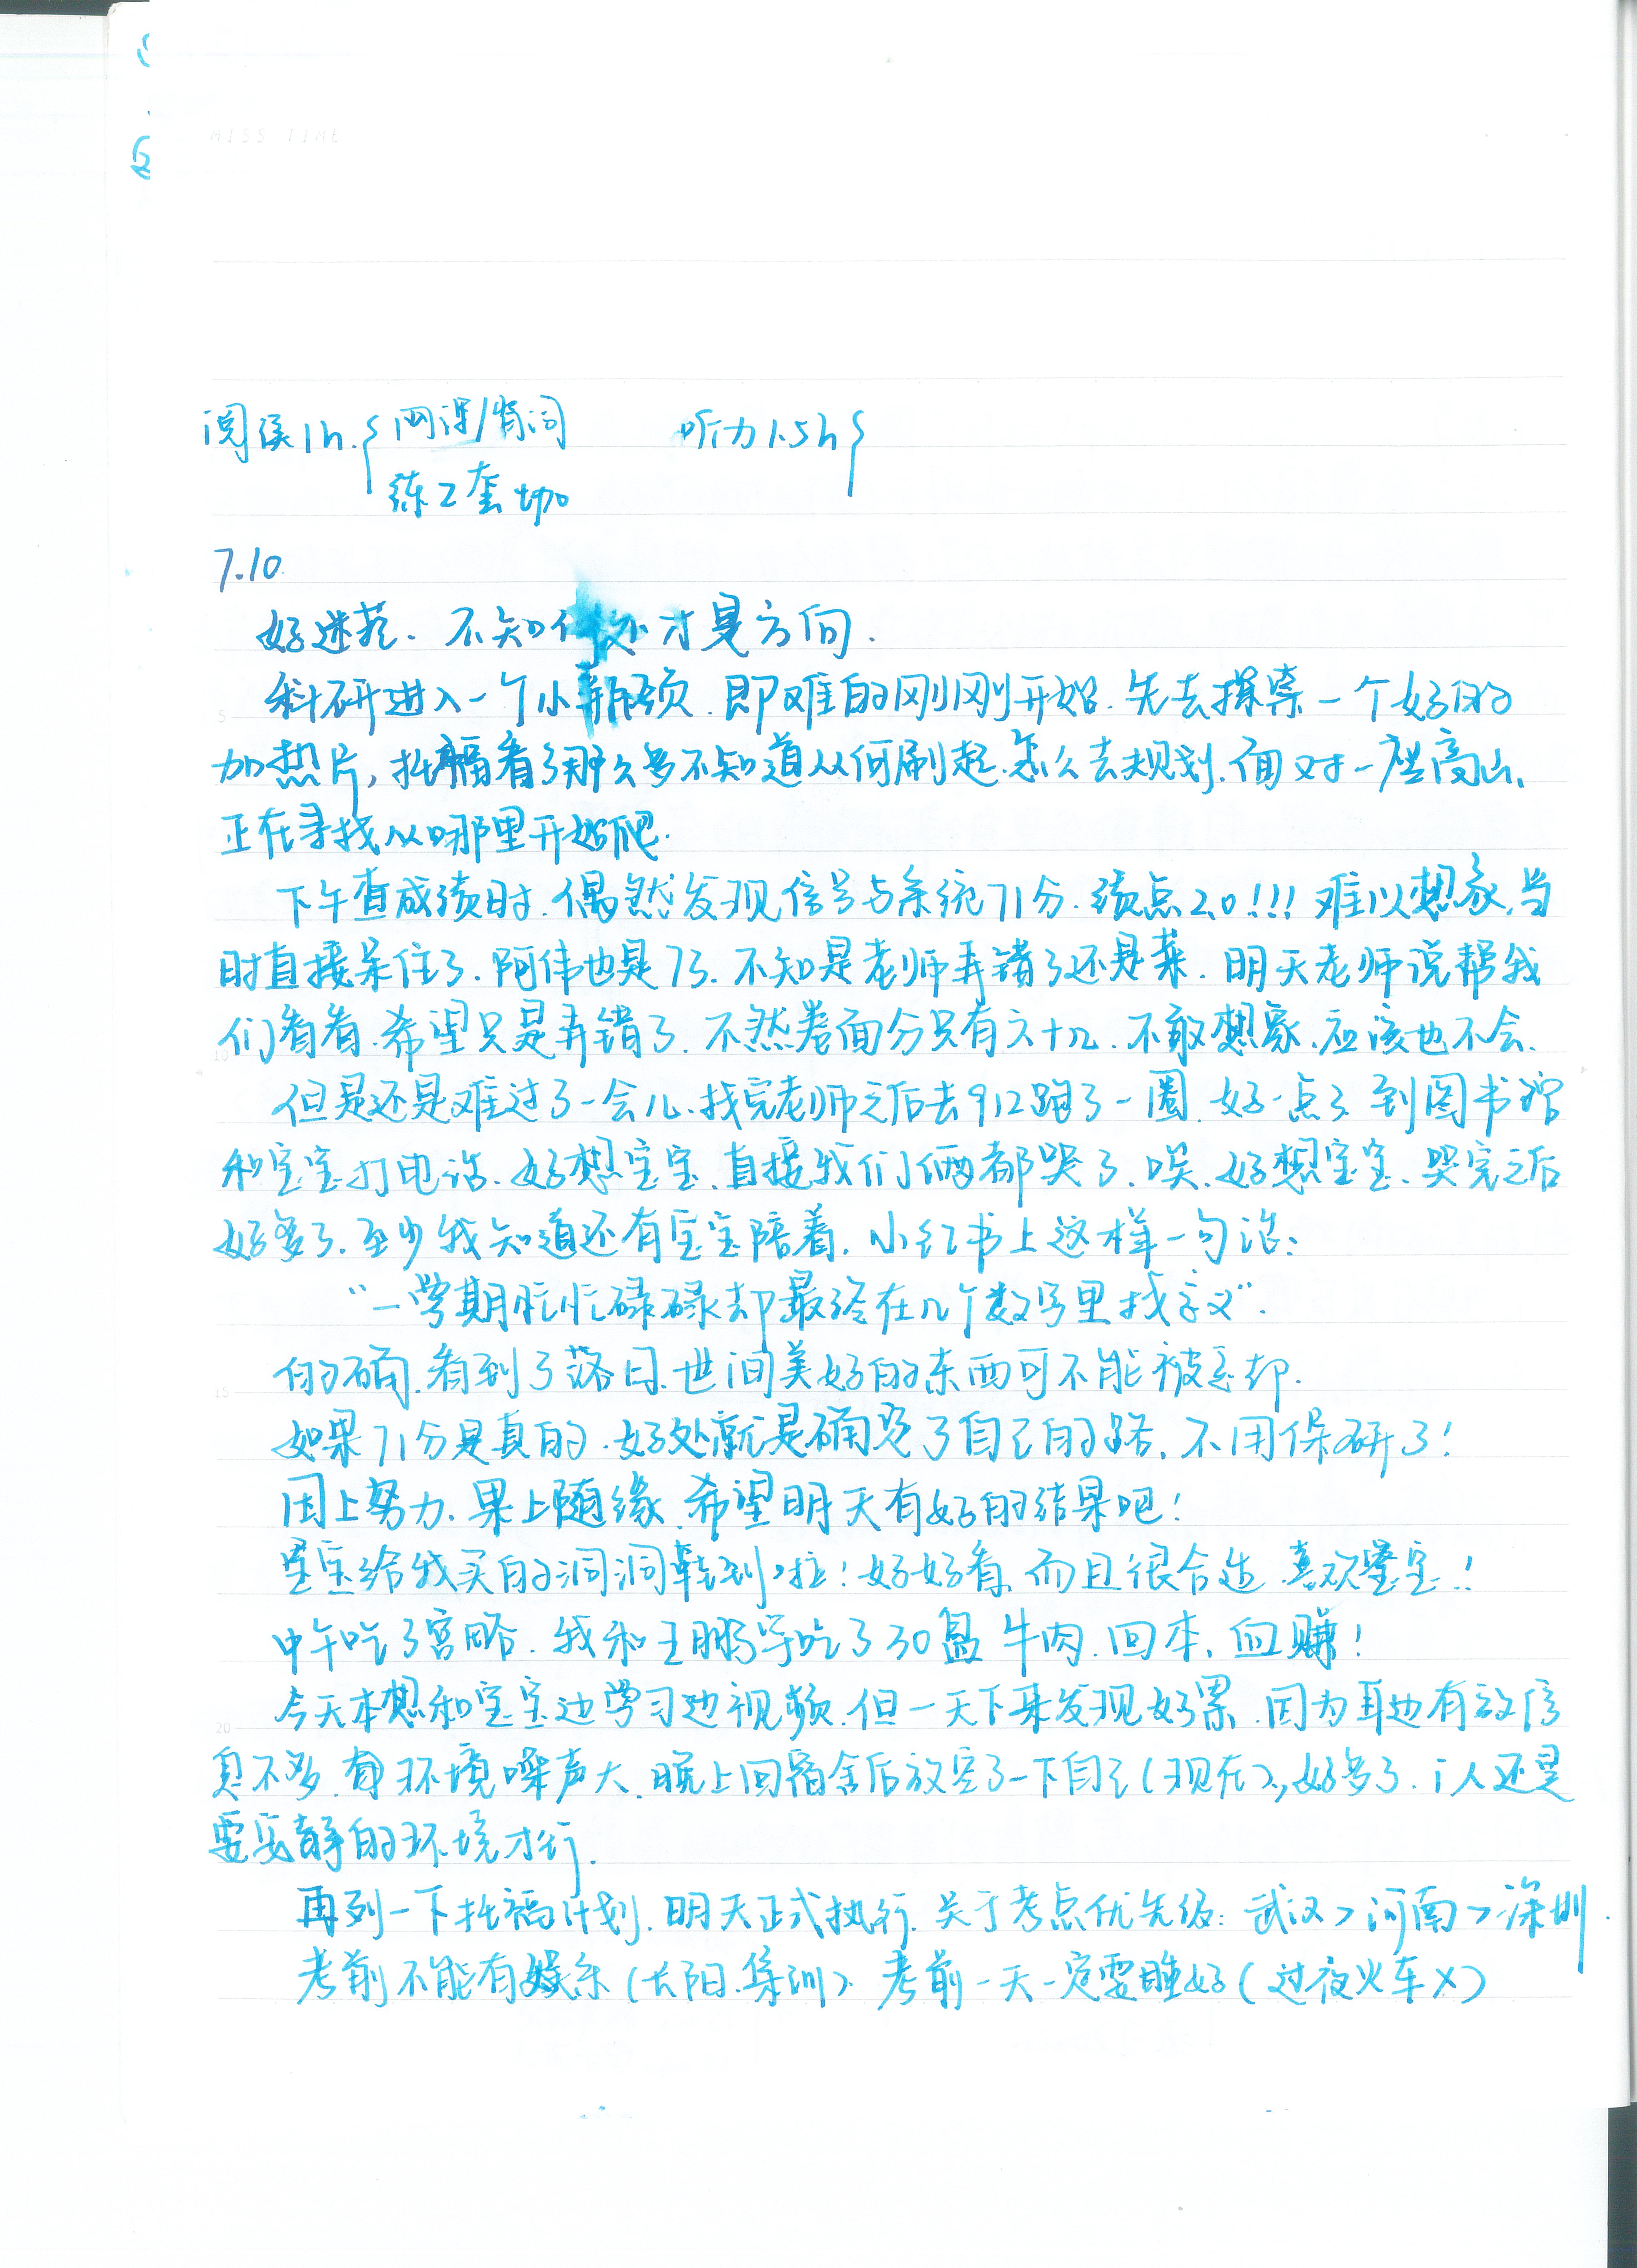 MISS TIME
阅读1h.{网课/背词 听力1.5h{
练2套 加
7.10
好迷茫. 不知 才是方向.
科研进入一个小瓶颈. 即难的刚刚开始. 先去探索一个好的
加热片, 托福看了那么多不知道从何刷起.怎么去规划.面对一座高山、
正在寻找从哪里开始爬.
下午查成绩时.偶然发现信号与系统71分.绩点2.0!!! 难以想象.当
时直接呆住了.阿伟也是73.不知是老师弄错了还是菜.明天老师说帮我
们看看.希望只是弄错了.不然卷面分只有六十几.不敢想象.应该也不会.
但是还是难过了一会儿.找完老师之后去912跑了一圈.好一点了.到图书馆
和宝宝打电话.好想宝宝.直接我们俩都哭了.唉.好想宝宝.哭完之后
好多了.至少我知道还有宝宝陪着.小红书上这样一句话:
“一学期忙忙碌碌却最终在几个数字里找意义”.
的确.看到了落日.世间美好的东西可不能被忘却.
如果71分是真的.好处就是确定了自己的路.不用保研了!
因上努力.果上随缘.希望明天有好的结果吧!
宝宝给我买的洞洞鞋到啦!好好看.而且很合适.喜欢宝宝!
中午吃了宫略.我和王鹏宇吃了30盘牛肉.回本.血赚!
今天本想和宝宝边学习边视频.但一天下来发现好累.因为耳边有效信
息不多.有环境噪声大.晚上回宿舍后放空了一下自己(现在),好多了.i人还是
要安静的环境才行.
再列一下托福计划.明天正式执行.关于考点优先级:武汉>河南>深圳.
考前不能有娱乐(长阳.集训).考前一天一定要睡好(过夜火车×)